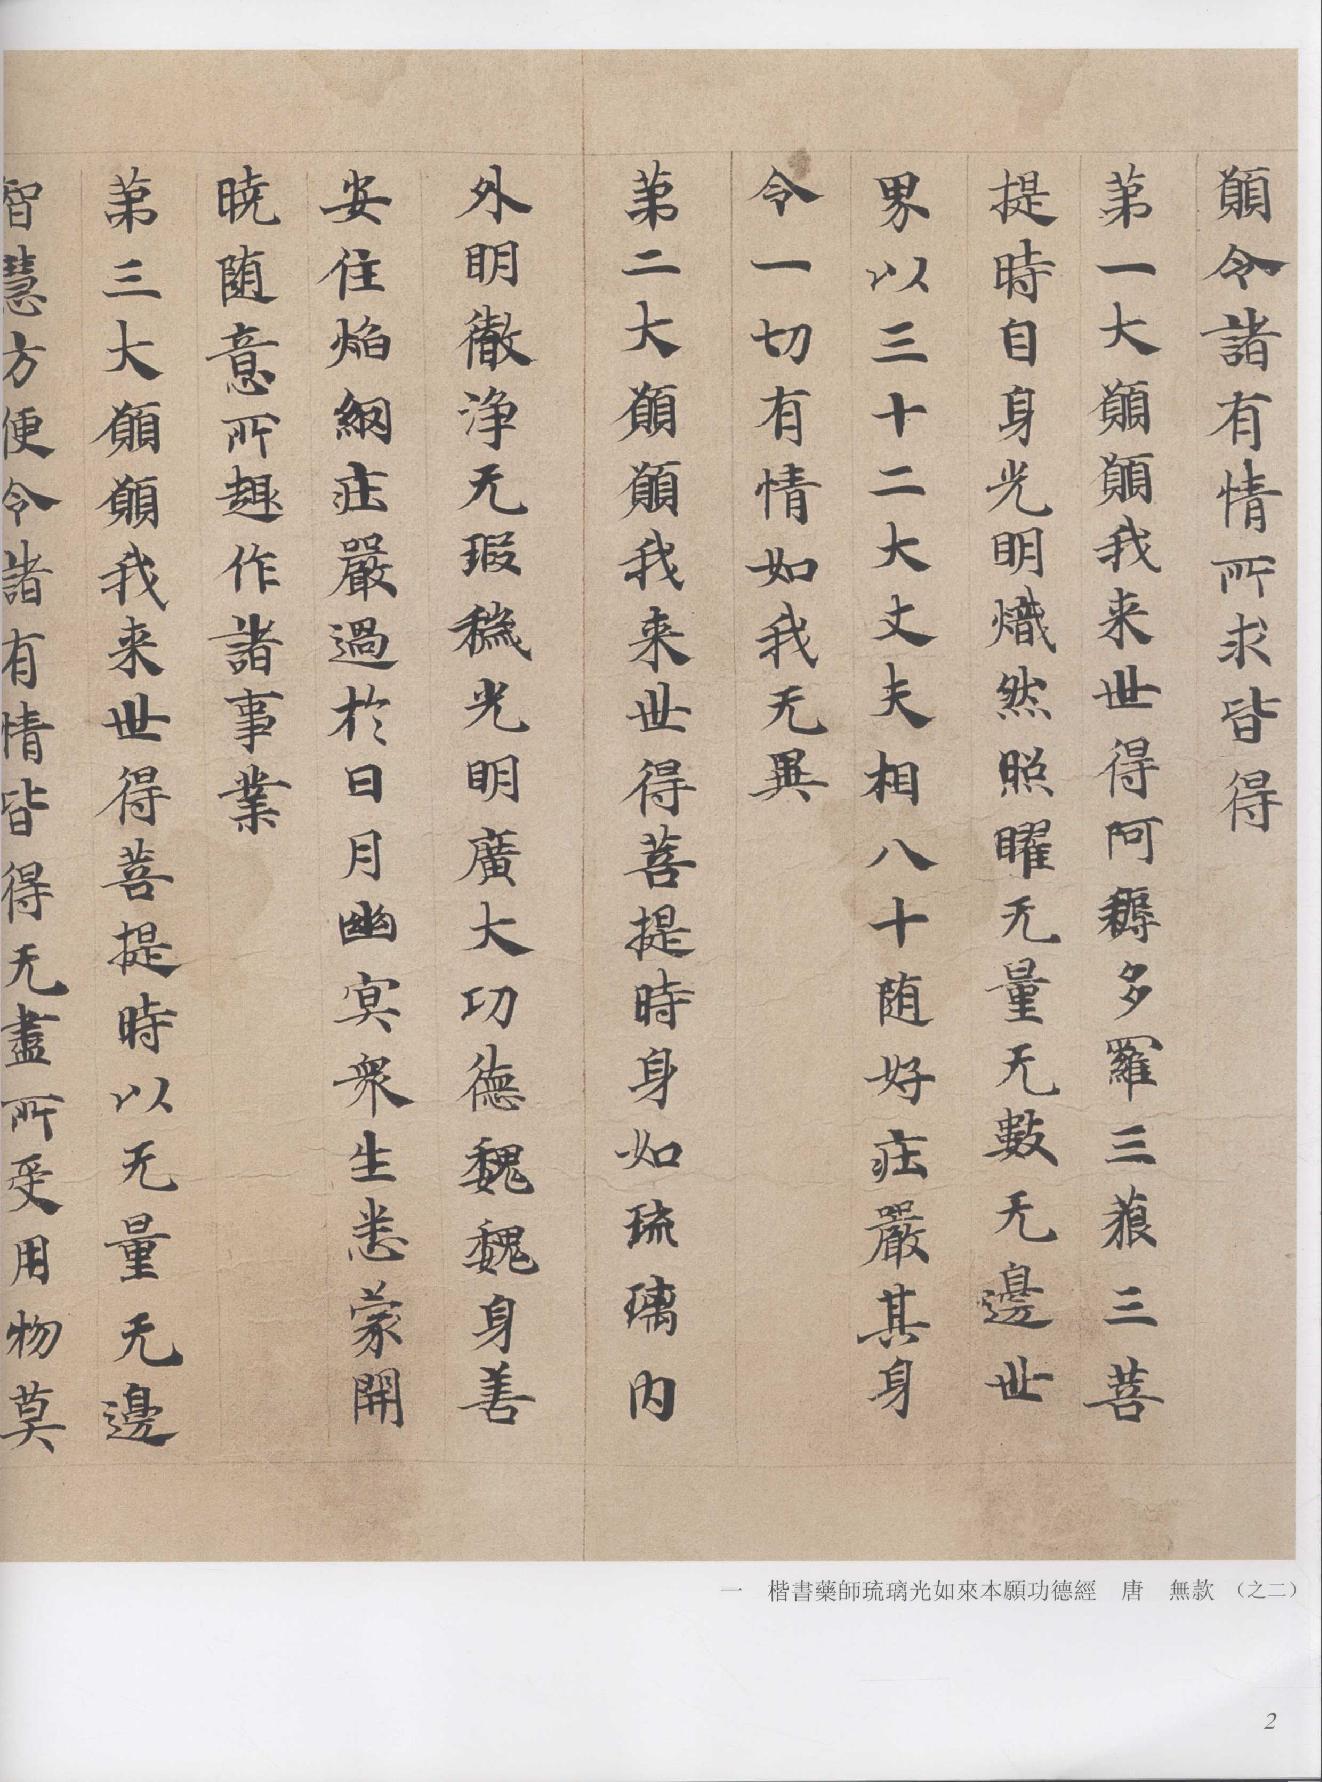 願令諸有情所求皆得
苐一大願願我来世得阿耨多羅三藐三菩
提時自身光明熾然照曜无量无數无邊世
界以三十二大丈夫相八十随好庄嚴其身
令一切有情如我无異
苐二大願願我来世得菩提時身如琉璃内
外明徹净无瑕穢光明廣大功德魏魏身善
安住焰網庄嚴過於日月幽冥衆生悉蒙開
暁随意所趣作諸事業
苐三大願願我来世得菩提時以无量无邊
智慧方便令諸有情皆得无盡所受用物莫
一　楷書藥師琉璃光如來本願功德經　唐　無款　（之二）
2